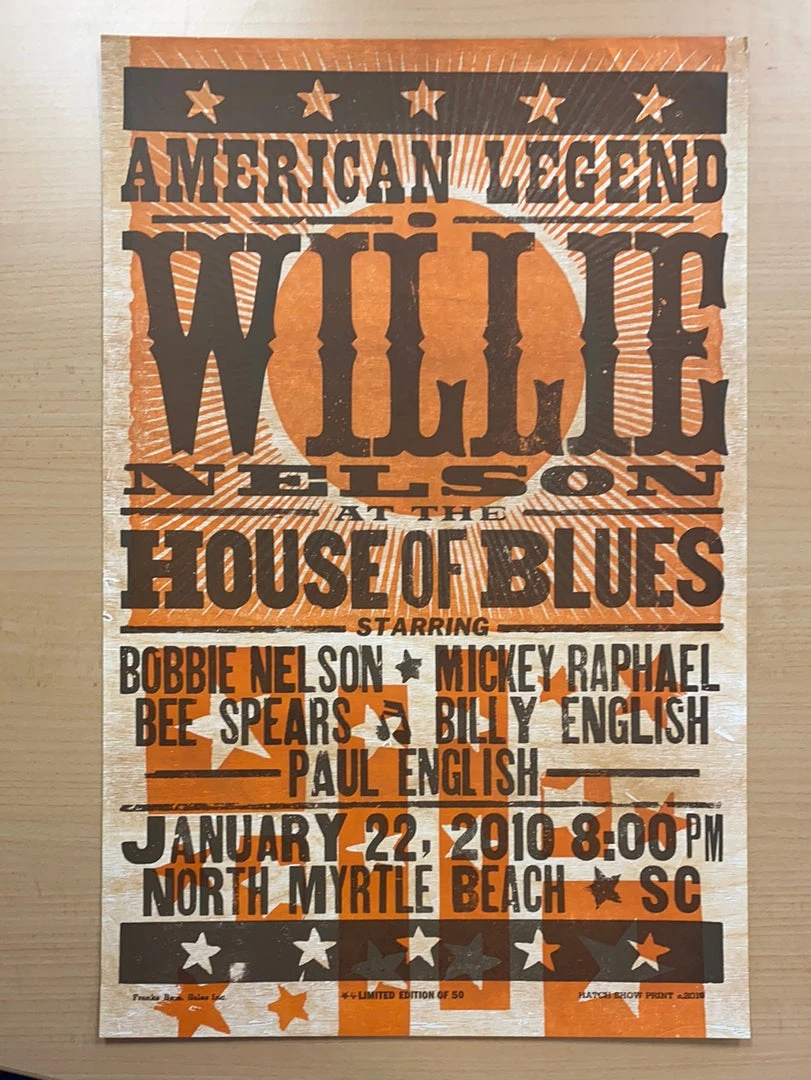 AMERICAN LEGEND
WILLIE
NELSON
AT THE
HOUSE OF BLUES
STARRING
BOBBIE NELSON ★ MICKEY RAPHAEL
BEE SPEARS ♫ BILLY ENGLISH
PAUL ENGLISH
JANUARY 22, 2010 8:00 PM
NORTH MYRTLE BEACH ★ SC
Franks Bros. Sales Inc. LIMITED EDITION OF 50 HATCH SHOW PRINT c.2010